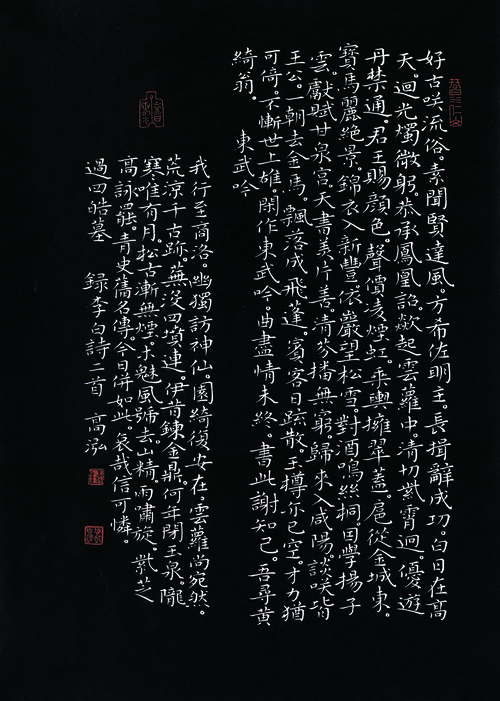 好古咲流俗。素聞賢達風。方希佐明主。長揖辭成功。白日在高
天。迴光燭微躬。恭承鳳凰詔。歘起雲蘿中。清切紫霄迥。優遊
丹禁通。君王賜顏色。聲價凌煙虹。乘輿擁翠蓋。扈從金城東。
寶馬麗絕景。錦衣入新豐。依巖望松雪。對酒鳴絲桐。因學揚子
雲。獻賦甘泉宮。天書美片善。清芬播無窮。歸來入咸陽。談咲皆
王公。一朝去金馬。飄落成飛蓬。賓客日疏散。玉樽亦已空。才力猶
可倚。不慚世上雄。閑作東武吟。曲盡情未終。書此謝知己。吾尋黃
綺翁。 東武吟
我行至商洛。幽獨訪神仙。園綺復安在。雲蘿尚宛然。
荒涼千古跡。無沒四墳連。伊昔鍊金鼎。何年閉玉泉。隴
寒惟有月。松古漸無煙。木魅風號去。山精雨嘯旋。紫芝
高詠罷。青史舊名傳。今日併如此。哀哉信可憐。
過四皓墓 錄李白詩二首 高泓